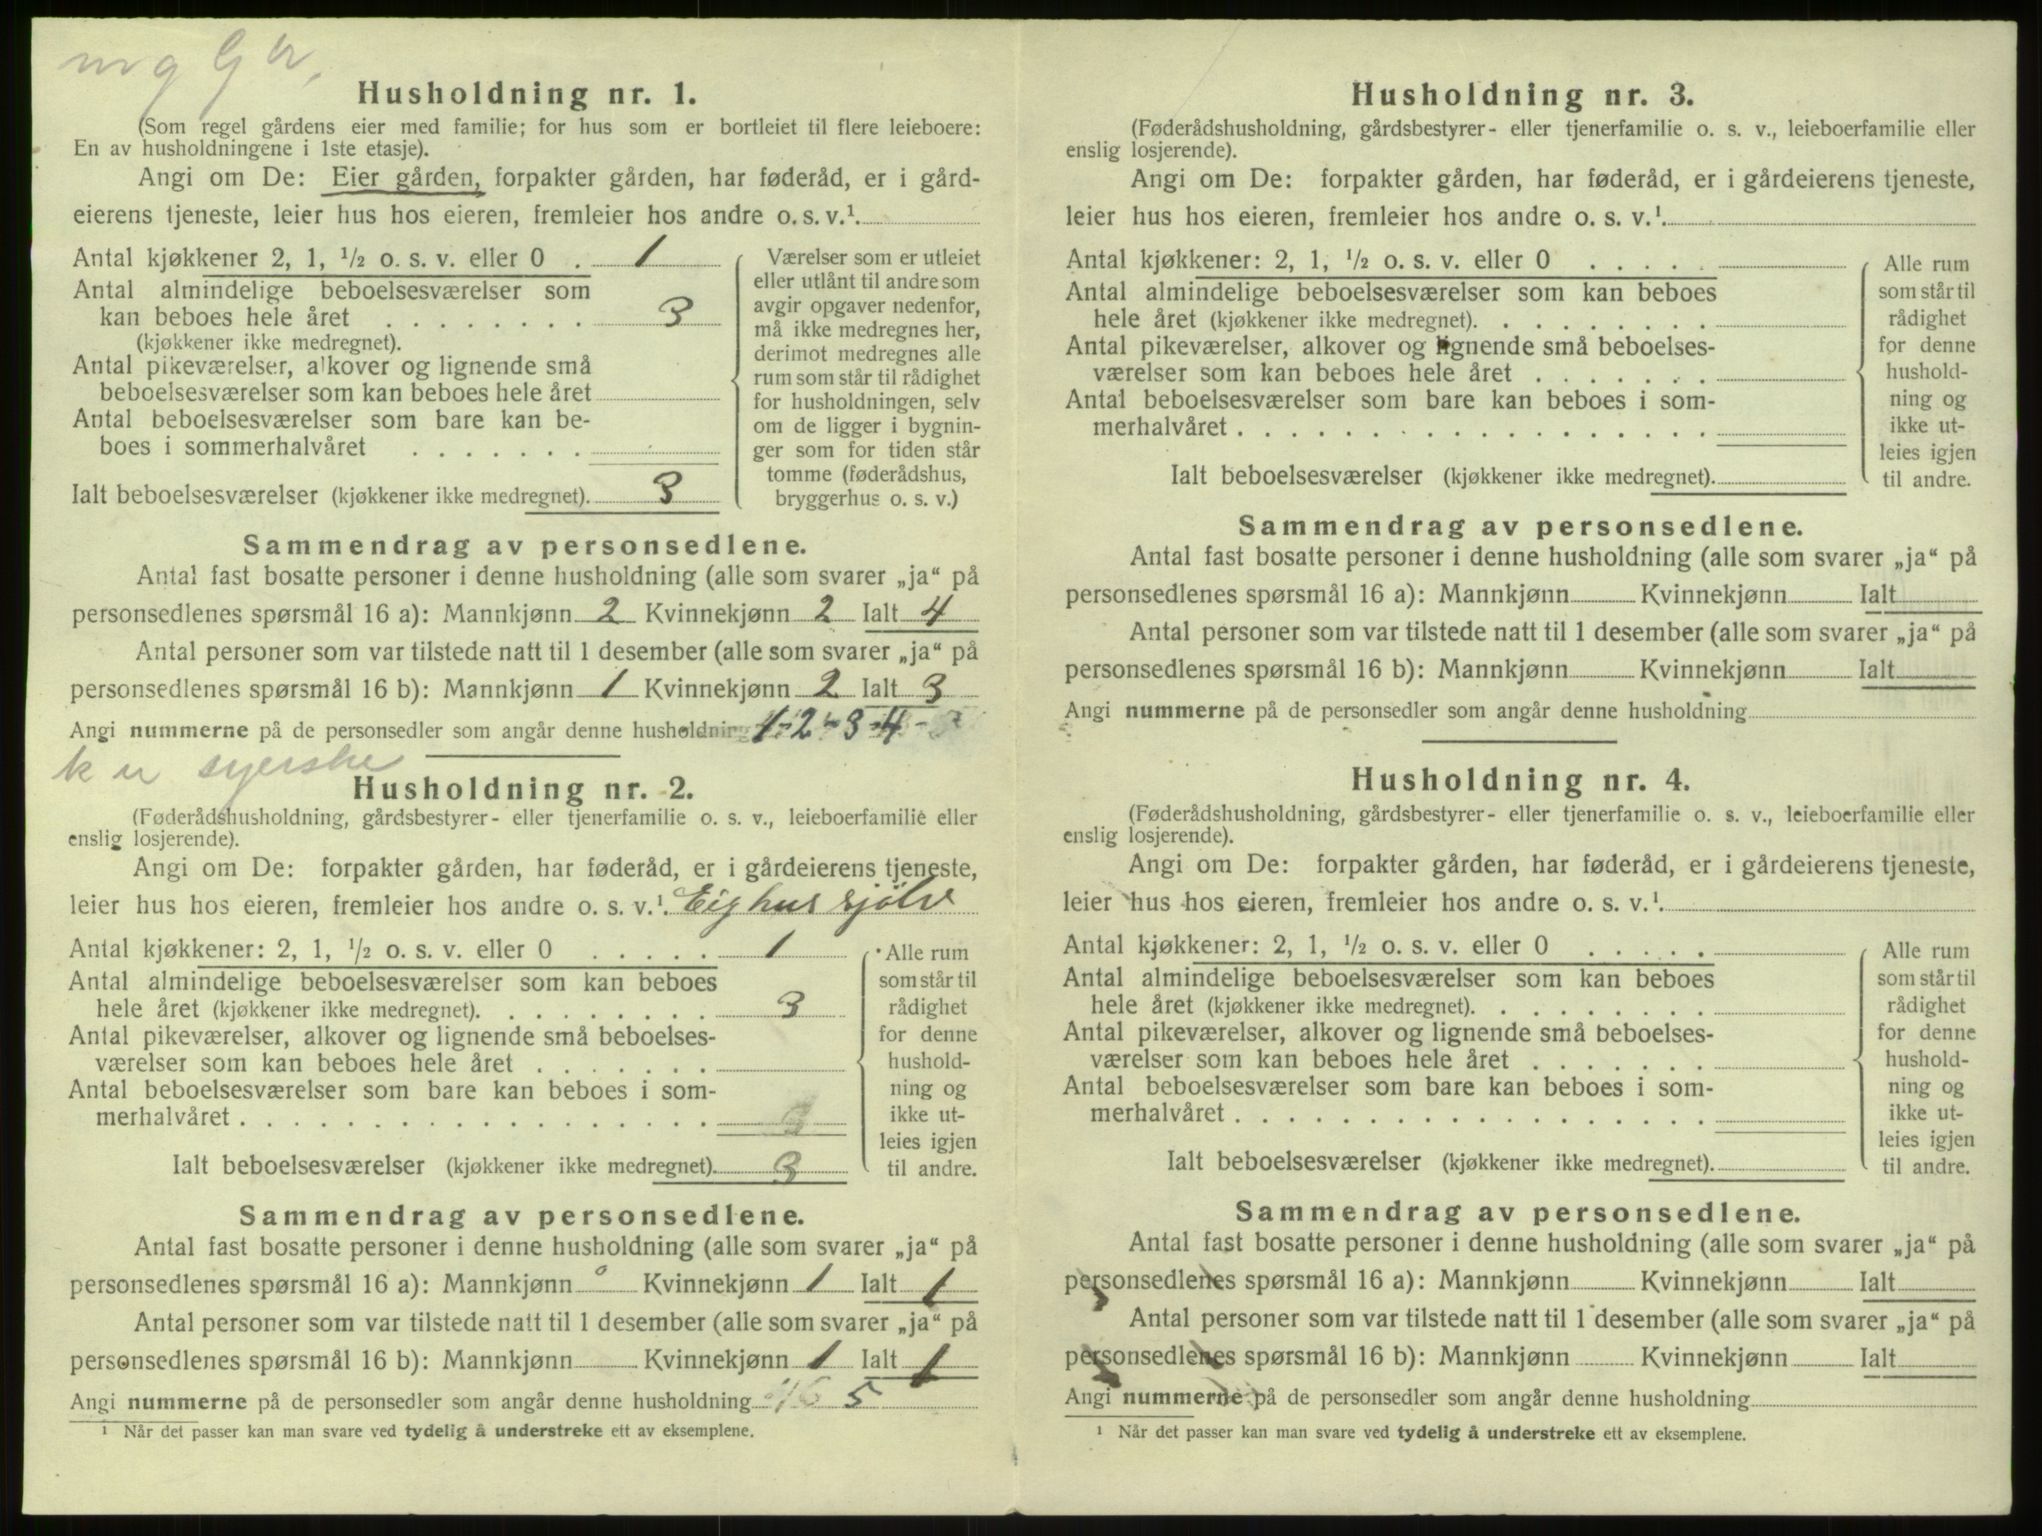 m g G br.
Husholdning nr. 1.
(Som regel gårdens eier med familie; for hus som er bortleiet til flere leieboere:
En av husholdningene i 1ste etasje).
Angi om De: Eier gården, forpakter gården, har føderåd, er i gård-
eierens tjeneste, leier hus hos eieren, fremleier hos andre o. s. v.¹
Antal kjøkkener 2, 1, ½ o. s. v. eller 0 . 1
Antal almindelige beboelsesværelser som
kan beboes hele året . . . . . . . . 3
(kjøkkener ikke medregnet).
Antal pikeværelser, alkover og lignende små
beboelsesværelser som kan beboes hele året
Antal beboelsesværelser som bare kan be-
boes i sommerhalvåret . . . . . . .
Ialt beboelsesværelser (kjøkkener ikke medregnet). 3
Værelser som er utleiet
eller utlånt til andre som
avgir opgaver nedenfor,
må ikke medregnes her,
derimot medregnes alle
rum som står til rådighet
for husholdningen, selv
om de ligger i bygnin-
ger som for tiden står
tomme (føderådshus,
bryggerhus o. s. v.)
Sammendrag av personsedlene.
Antal fast bosatte personer i denne husholdning (alle som svarer „ja“ på
personsedlenes spørsmål 16 a): Mannkjønn 2 Kvinnekjønn 2 Ialt 4
Antal personer som var tilstede natt til 1 desember (alle som svarer „ja“ på
personsedlenes spørsmål 16 b): Mannkjønn 1 Kvinnekjønn 2 Ialt 3
Angi nummerne på de personsedler som angår denne husholdning 1-2-3-4-
k u syerske
Husholdning nr. 2.
(Føderådshusholdning, gårdsbestyrer- eller tjenerfamilie o. s. v., leieboerfamilie eller
enslig losjerende).
Angi om De: forpakter gården, har føderåd, er i gårdeierens tjeneste,
leier hus hos eieren, fremleier hos andre o. s. v.¹. Eig hus sjølv
Antal kjøkkener: 2, 1, ½ o. s. v. eller 0 . . . . . 1
Antal almindelige beboelsesværelser som kan beboes
hele året (kjøkkener ikke medregnet). . . . . . . . . 3
Antal pikeværelser, alkover og lignende små beboelses-
værelser som kan beboes hele året . . . . . . .
Antal beboelsesværelser som bare kan beboes i som-
merhalvåret . . . . . . . . . . . . . . . . . .
Ialt beboelsesværelser (kjøkkener ikke medregnet). 3
Alle rum
som står til
rådighet
for denne
hushold-
ning og
ikke ut-
leies igjen
til andre.
Sammendrag av personsedlene.
Antal fast bosatte personer i denne husholdning (alle som svarer „ja“ på
personsedlenes spørsmål 16 a): Mannkjønn 0 Kvinnekjønn 1 Ialt 1
Antal personer som var tilstede natt til 1 desember (alle som svarer „ja“ på
personsedlenes spørsmål 16 b): Mannkjønn Kvinnekjønn 1 Ialt 1
Angi nummerne på de personsedler som angår denne husholdning 5
¹ Når det passer kan man svare ved tydelig å understreke ett av eksemplene.
Husholdning nr. 3.
(Føderådshusholdning, gårdsbestyrer- eller tjenerfamilie o. s. v., leieboerfamilie eller
enslig losjerende).
Angi om De: forpakter gården, har føderåd, er i gårdeierens tjeneste,
leier hus hos eieren, fremleier hos andre o. s. v.¹.
Antal kjøkkener: 2, 1, ½ o. s. v. eller 0 . . . . .
Antal almindelige beboelsesværelser som kan beboes
hele året (kjøkkener ikke medregnet). . . . . . . . .
Antal pikeværelser, alkover og lignende små beboelses-
værelser som kan beboes hele året . . . . . . .
Antal beboelsesværelser som bare kan beboes i som-
merhalvåret . . . . . . . . . . . . . . . . . .
Ialt beboelsesværelser (kjøkkener ikke medregnet).
Alle rum
som står til
rådighet
for denne
hushold-
ning og
ikke ut-
leies igjen
til andre.
Sammendrag av personsedlene.
Antal fast bosatte personer i denne husholdning (alle som svarer „ja“ på
personsedlenes spørsmål 16 a): Mannkjønn Kvinnekjønn Ialt
Antal personer som var tilstede natt til 1 desember (alle som svarer „ja“ på
personsedlenes spørsmål 16 b): Mannkjønn Kvinnekjønn Ialt
Angi nummerne på de personsedler som angår denne husholdning
Husholdning nr. 4.
(Føderådshusholdning, gårdsbestyrer- eller tjenerfamilie o. s. v., leieboerfamilie eller
enslig losjerende).
Angi om De: forpakter gården, har føderåd, er i gårdeierens tjeneste,
leier hus hos eieren, fremleier hos andre o. s. v.¹.
Antal kjøkkener: 2, 1, ½ o. s. v. eller 0 . . . . .
Antal almindelige beboelsesværelser som kan beboes
hele året (kjøkkener ikke medregnet). . . . . . . . .
Antal pikeværelser, alkover og lignende små beboelses-
værelser som kan beboes hele året . . . . . . .
Antal beboelsesværelser som bare kan beboes i som-
merhalvåret . . . . . . . . . . . . . . . . . .
Ialt beboelsesværelser (kjøkkener ikke medregnet).
Alle rum
som står til
rådighet
for denne
hushold-
ning og
ikke ut-
leies igjen
til andre.
Sammendrag av personsedlene.
Antal fast bosatte personer i denne husholdning (alle som svarer „ja“ på
personsedlenes spørsmål 16 a): Mannkjønn Kvinnekjønn Ialt
Antal personer som var tilstede natt til 1 desember (alle som svarer „ja“ på
personsedlenes spørsmål 16 b): Mannkjønn Kvinnekjønn Ialt
Angi nummerne på de personsedler som angår denne husholdning
¹ Når det passer kan man svare ved tydelig å understreke ett av eksemplene.